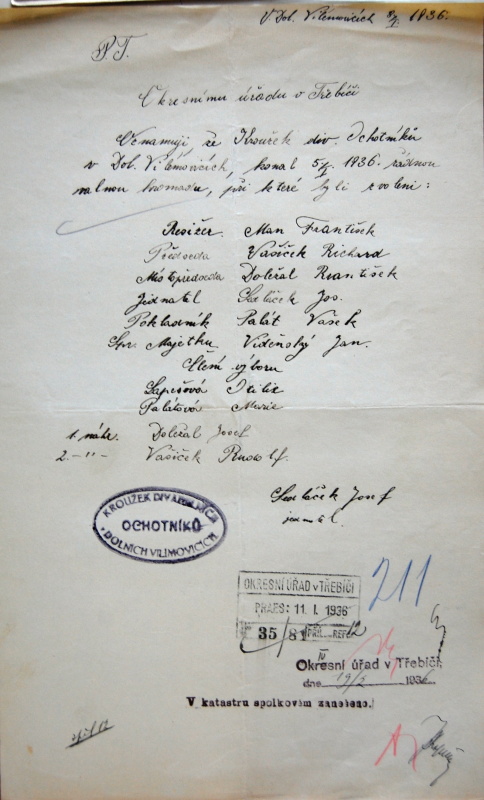 V Dol. Vilémovicích 8/I. 1936.
P.T.
Okresnímu úřadu v Třebíči
Oznamuji, že Kroužek div. Ochotníků
v Dol. Vilémovicích, konal 5/I. 1936 řádnou
valnou hromadu, při které byli zvoleni:
Resižer Man František
Předseda Vašíček Richard
Místopředseda Doležal František
Jednatel Sedláček Jos.
Pokladník Palát Vašek
Spr. Majetku Vídeňský Jan.
Členi výboru
Palátová Marie
1. náhr. Doležal Josef
2. -"- Vašíček Rudolf.
Sedláček Josef
jednatel.
KROUŽEK DIVADELNÍCH
OCHOTNÍKŮ
V DOLNÍCH VILÍMOVICÍCH
OKRESNÍ ÚŘAD v TŘEBÍČI
PRAES: 11. I. 1936
35/81 PŘÍL. REF. 12
211
Okresní úřad v Třebíči,
dne 19/2 1936
V katastru spolkovém zaneseno.